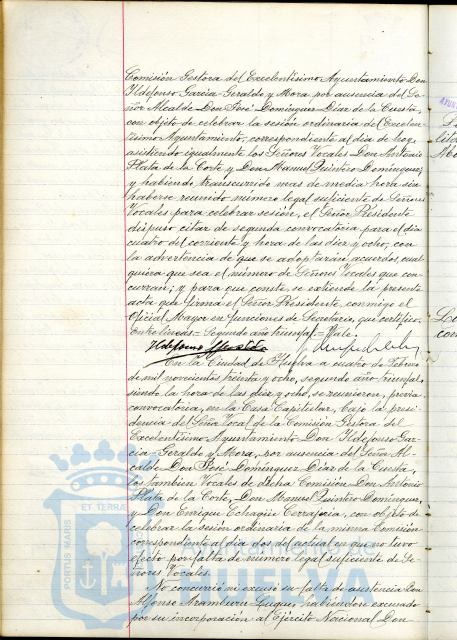 Comisión Gestora del Excelentísimo Ayuntamiento Don
Ildefonso García-Geraldo y Mora, por ausencia del Se-
ñor Alcalde Don José Domínguez Díaz de la Cuesta,
con objeto de celebrar la sesión ordinaria del Excelen-
tísimo Ayuntamiento, correspondiente al día de hoy,
asistiendo igualmente los Señores Vocales Don Antonio
Plata de la Corte y Don Manuel Quintero Domínguez;
y habiendo transcurrido mas de media hora sin
haberse reunido número legal suficiente de Señores
Vocales para celebrar sesión, el Señor Presidente
dispuso citar de segunda convocatoria para el día
cuatro del corriente y hora de las diez y ocho, con
la advertencia de que se adoptarán acuerdos cual-
quiera que sea el número de Señores Vocales que con-
curran; y para que conste, se extiende la presente
acta que firma el Señor Presidente, conmigo el
Oficial Mayor en funciones de Secretario, que certifico.
Entrelíneas = Segundo año triunfal = Vale.
Ildefonso
En la Ciudad de Huelva a cuatro de Febrero
de mil novecientos treinta y ocho, segundo año triunfal,
siendo la hora de las diez y ocho, se reunieron, previa
convocatoria, en la Casa Capitular, bajo la presi-
dencia del Señor Vocal de la Comisión Gestora del
Excelentísimo Ayuntamiento Don Ildefonso Gar-
cía-Geraldo y Mora, por ausencia del Señor Al-
calde Don José Domínguez Díaz de la Cuesta,
los también Vocales de dicha Comisión Don Antonio
Plata de la Corte, Don Manuel Quintero Domínguez,
y Don Enrique Echagüe Cerrajería, con objeto de
celebrar la sesión ordinaria de la misma Comisión
correspondiente al día dos del actual en que no tuvo
efecto por falta de número legal suficiente de Se-
ñores Vocales.
No concurrió ni excusó su falta de asistencia Don
Alfonso Aramburu Luque, habiéndose excusado
por su incorporación al Ejército Nacional Don
PORTUS MARIS ET TERRAE
Ayuntamiento de
HUELVA